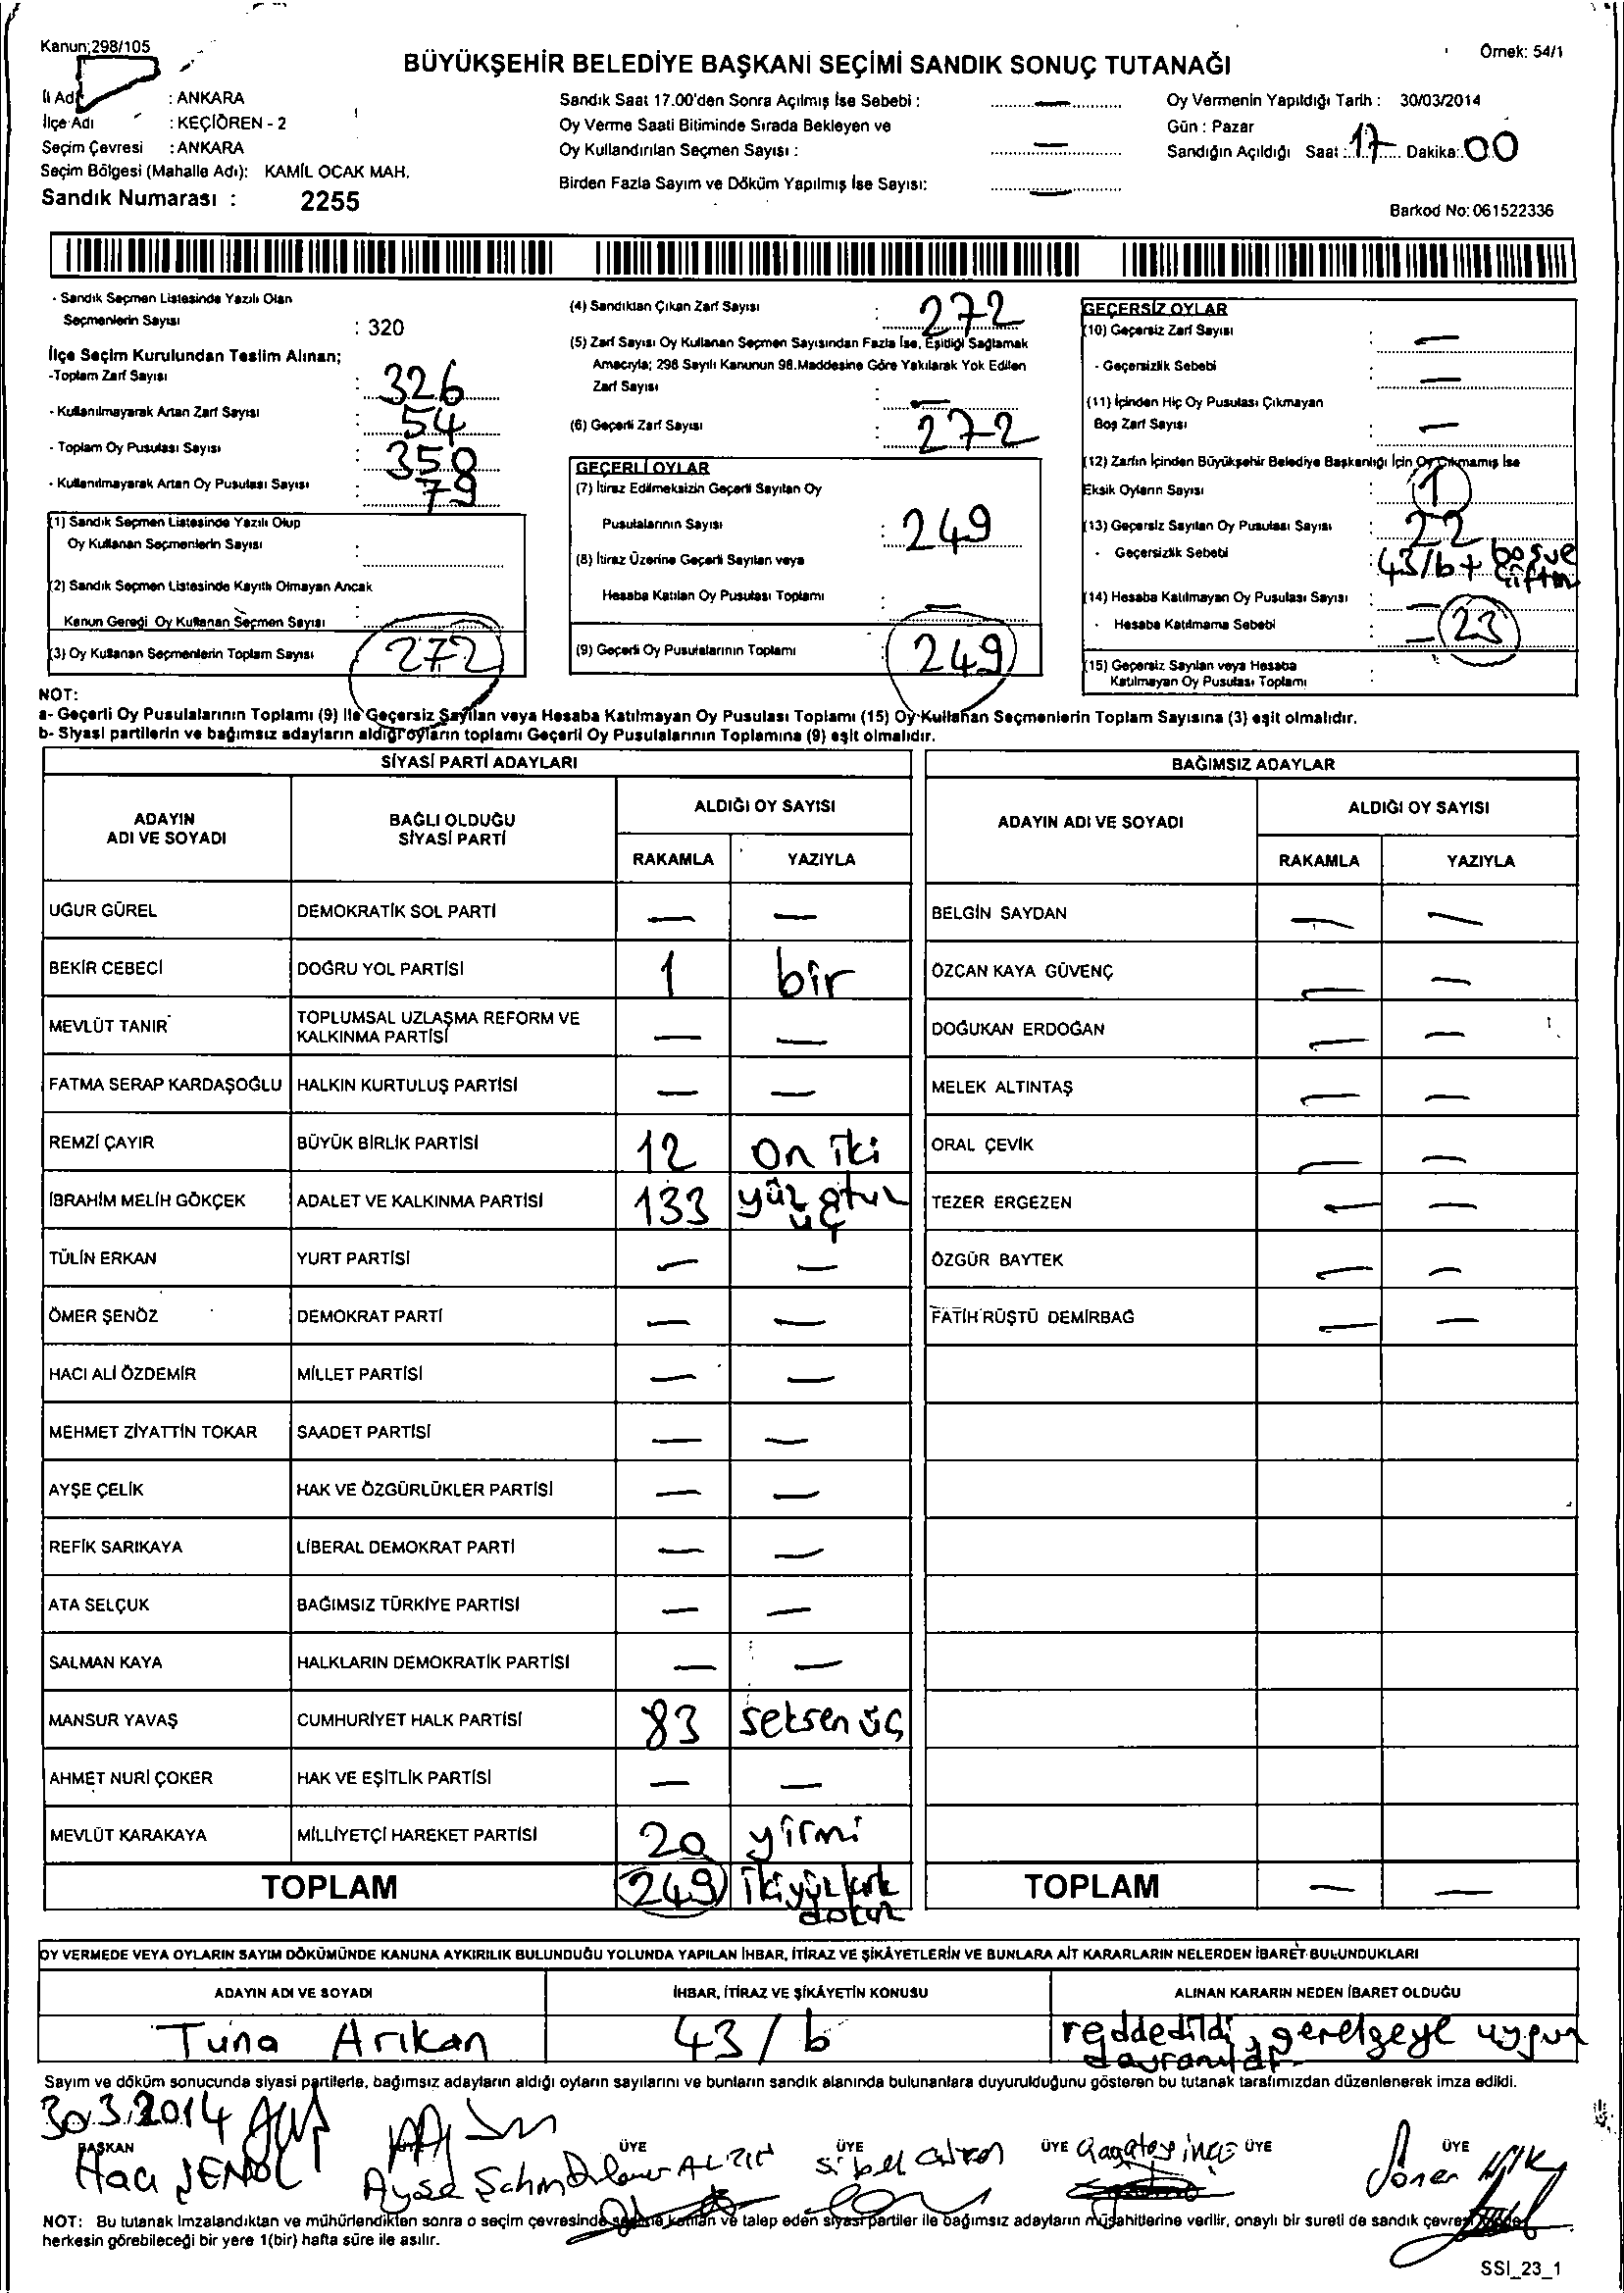 Kanun:298/105
Örnek: 54/1
BÜYÜKŞEHİR BELEDİYE BAŞKANI SEÇİMİ SANDIK SONUÇ TUTANAĞI
İl Adı : ANKARA
İlçe Adı : KEÇİÖREN - 2
Seçim Çevresi : ANKARA
Seçim Bölgesi (Mahalle Adı): KAMİL OCAK MAH.
Sandık Numarası : 2255
Sandık Saat 17.00'den Sonra Açılmış İse Sebebi : —
Oy Verme Saati Bitiminde Sırada Bekleyen ve
Oy Kullandırılan Seçmen Sayısı : —
Birden Fazla Sayım ve Döküm Yapılmış İse Sayısı: —
Oy Vermenin Yapıldığı Tarih : 30/03/2014
Gün : Pazar
Sandığın Açıldığı Saat : 17 Dakika: 00
Barkod No: 061522336
- Sandık Seçmen Listesinde Yazılı Olan
Seçmenlerin Sayısı : 320
İlçe Seçim Kurulundan Teslim Alınan;
-Toplam Zarf Sayısı : 326
- Kullanılmayarak Artan Zarf Sayısı : 54
- Toplam Oy Pusulası Sayısı : 350
- Kullanılmayarak Artan Oy Pusulası Sayısı : 79
(1) Sandık Seçmen Listesinde Yazılı Olup
Oy Kullanan Seçmenlerin Sayısı :
(2) Sandık Seçmen Listesinde Kayıtlı Olmayan Ancak
Kanun Gereği Oy Kullanan Seçmen Sayısı :
(3) Oy Kullanan Seçmenlerin Toplam Sayısı 272
(4) Sandıktan Çıkan Zarf Sayısı : 272
(5) Zarf Sayısı Oy Kullanan Seçmen Sayısından Fazla İse, Eşitliği Sağlamak
Amacıyla; 298 Sayılı Kanunun 98.Maddesine Göre Yakılarak Yok Edilen
Zarf Sayısı : —
(6) Geçerli Zarf Sayısı : 272
GEÇERLİ OYLAR
(7) İtiraz Edilmeksizin Geçerli Sayılan Oy
Pusulalarının Sayısı : 249
(8) İtiraz Üzerine Geçerli Sayılan veya
Hesaba Katılan Oy Pusulası Toplamı : —
(9) Geçerli Oy Pusulalarının Toplamı : 249
GEÇERSİZ OYLAR
(10) Geçersiz Zarf Sayısı : —
- Geçersizlik Sebebi : —
(11) İçinden Hiç Oy Pusulası Çıkmayan
Boş Zarf Sayısı : —
(12) Zarfın İçinden Büyükşehir Belediye Başkanlığı İçin Oy Çıkmamış İse
Eksik Oyların Sayısı : 1
(13) Geçersiz Sayılan Oy Pusulası Sayısı : 22
- Geçersizlik Sebebi : 43/b + boş ve
(14) Hesaba Katılmayan Oy Pusulası Sayısı : —
- Hesaba Katılmama Sebebi : — 23
(15) Geçersiz Sayılan veya Hesaba
Katılmayan Oy Pusulası Toplamı :
NOT:
a- Geçerli Oy Pusulalarının Toplamı (9) İle Geçersiz Sayılan veya Hesaba Katılmayan Oy Pusulası Toplamı (15) Oy Kullanan Seçmenlerin Toplam Sayısına (3) eşit olmalıdır.
b- Siyasi partilerin ve bağımsız adayların aldığı oyların toplamı Geçerli Oy Pusulalarının Toplamına (9) eşit olmalıdır.
SİYASİ PARTİ ADAYLARI
ADAYIN ADI VE SOYADI BAĞLI OLDUĞU SİYASİ PARTİ ALDIĞI OY SAYISI
RAKAMLA YAZIYLA
UĞUR GÜREL DEMOKRATİK SOL PARTİ — —
BEKİR CEBECİ DOĞRU YOL PARTİSİ 1 bir
MEVLÜT TANIR TOPLUMSAL UZLAŞMA REFORM VE KALKINMA PARTİSİ — —
FATMA SERAP KARDAŞOĞLU HALKIN KURTULUŞ PARTİSİ — —
REMZİ ÇAYIR BÜYÜK BİRLİK PARTİSİ 12 on iki
İBRAHİM MELİH GÖKÇEK ADALET VE KALKINMA PARTİSİ 133 yüz otuz üç
TÜLİN ERKAN YURT PARTİSİ — —
ÖMER ŞENÖZ DEMOKRAT PARTİ — —
HACI ALİ ÖZDEMİR MİLLET PARTİSİ — —
MEHMET ZİYATTİN TOKAR SAADET PARTİSİ — —
AYŞE ÇELİK HAK VE ÖZGÜRLÜKLER PARTİSİ — —
REFİK SARIKAYA LİBERAL DEMOKRAT PARTİ — —
ATA SELÇUK BAĞIMSIZ TÜRKİYE PARTİSİ — —
SALMAN KAYA HALKLARIN DEMOKRATİK PARTİSİ — —
MANSUR YAVAŞ CUMHURİYET HALK PARTİSİ 83 seksen üç
AHMET NURİ ÇOKER HAK VE EŞİTLİK PARTİSİ — —
MEVLÜT KARAKAYA MİLLİYETÇİ HAREKET PARTİSİ 20 yirmi
TOPLAM 249 ikiyüz kırk dokuz
BAĞIMSIZ ADAYLAR
ADAYIN ADI VE SOYADI ALDIĞI OY SAYISI
RAKAMLA YAZIYLA
BELGİN SAYDAN — —
ÖZCAN KAYA GÜVENÇ — —
DOĞUKAN ERDOĞAN — —
MELEK ALTINTAŞ — —
ORAL ÇEVİK — —
TEZER ERGEZEN — —
ÖZGÜR BAYTEK — —
FATİH RÜŞTÜ DEMİRBAĞ — —
TOPLAM — —
OY VERMEDE VEYA OYLARIN SAYIM DÖKÜMÜNDE KANUNA AYKIRILIK BULUNDUĞU YOLUNDA YAPILAN İHBAR, İTİRAZ VE ŞİKÂYETLERİN VE BUNLARA AİT KARARLARIN NELERDEN İBARET BULUNDUKLARI
ADAYIN ADI VE SOYADI İHBAR, İTİRAZ VE ŞİKÂYETİN KONUSU ALINAN KARARIN NEDEN İBARET OLDUĞU
Tuna Arıkan 43 / b reddedildi, gerekçeye uygun davranıldı
Sayım ve döküm sonucunda siyasi partilerle, bağımsız adayların aldığı oyların sayılarını ve bunların sandık alanında bulunanlara duyurulduğunu gösteren bu tutanak tarafımızdan düzenlenerek imza edildi.
30.3.2014
BAŞKAN ÜYE ÜYE ÜYE ÜYE ÜYE
Hacı ŞENOL Ayşe Sibel Çağatay Soner IŞIK
NOT: Bu tutanak imzalandıktan ve mühürlendikten sonra o seçim çevresinde seçime katılan ve talep eden siyasi partiler ile bağımsız adayların müşahitlerine verilir, onaylı bir sureti de sandık çevresinde
herkesin görebileceği bir yere 1(bir) hafta süre ile asılır.
SSI_23_1